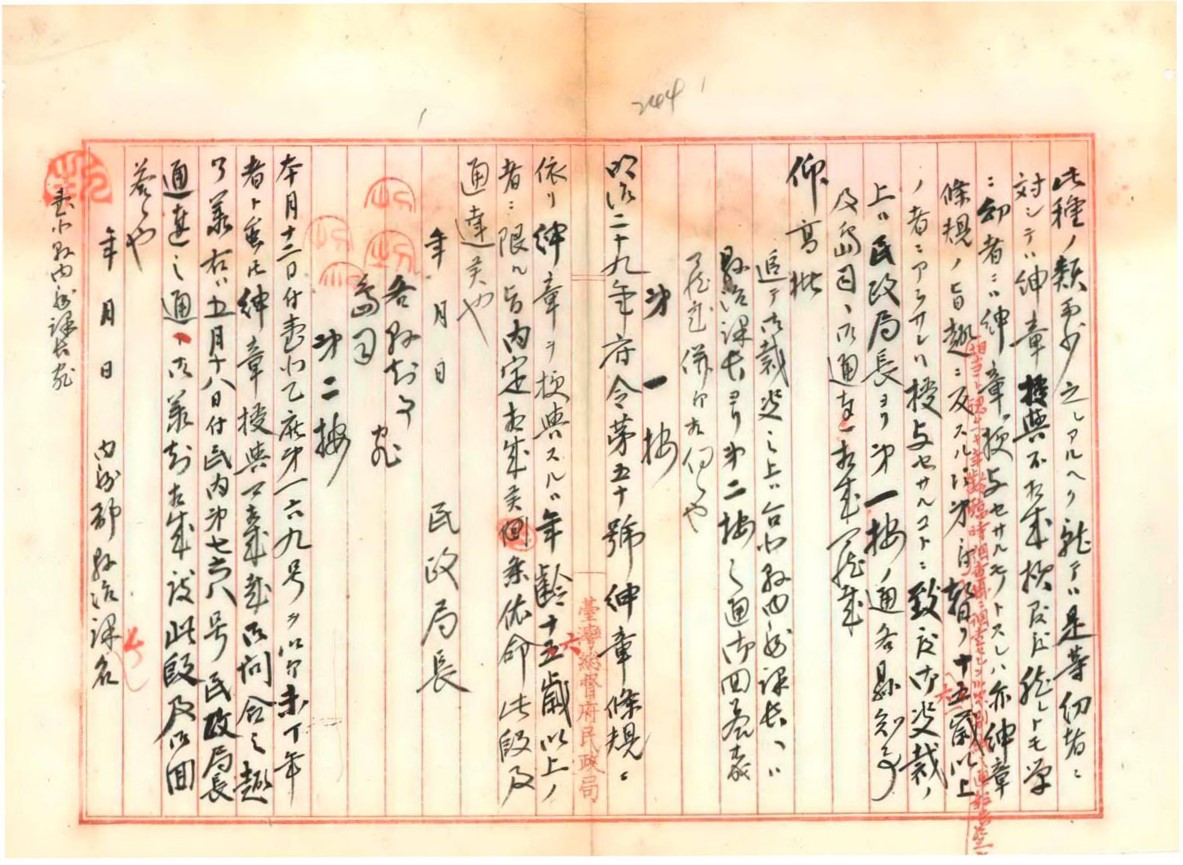 此種ノ類尠少之レアルヘク就テハ是等幼者ニ
対シテハ紳章授與不相成様致度然レトモ単
ニ幼者ニハ紳章授与セサルモノトスレハ亦紳章
條規ノ旨趣ニ反スル次第ニ付暫ク十五歳以上
ノ者ニアラサレハ授与セサルコトニ致度御決裁ノ
上ハ民政局長ヨリ第一按ノ通各縣知事
及島司ヘ御通達相成可然哉
仰高批
追テ御裁決之上ハ台北縣内務課長ヘハ
縣治課長ヨリ第二按之通御回答
可然哉併テ相伺候也
第一按
明治二十九年府令第五十號紳章條規ニ
依リ紳章ヲ授與スルハ年齢十五六歳以上ノ
者ニ限ル旨内定相成候条依命此段及
通達候也
年月日
民政局長
各縣知事宛
島司
第二按
本月十二日付臺北乙庶第一六九号ヲ以テ未丁年
者ト雖モ紳章授與可相成哉御問合之趣
了承右ハ五月十八日付民内第七六八号民政局長
通達之通ニ御承知相成度此段及御回
答候也
年月日
内務部縣治課名
臺北縣内務課長宛
臺灣總督府民政局